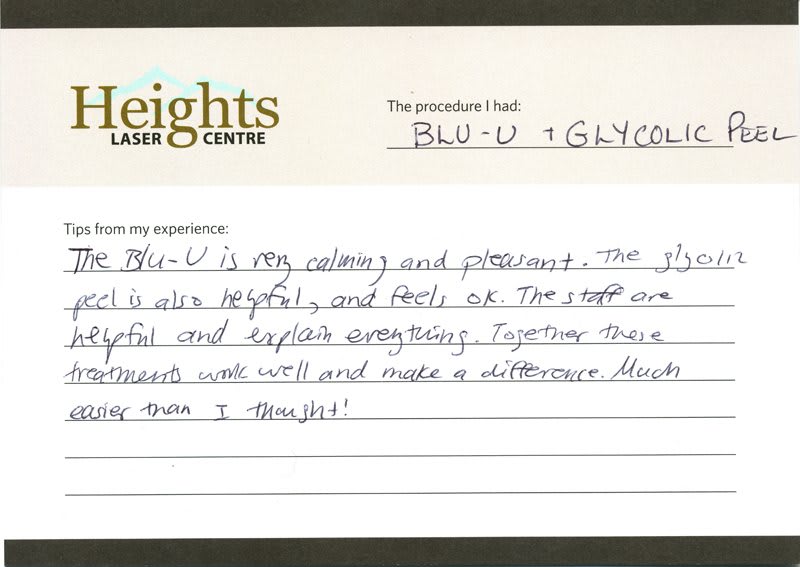 Heights
LASER CENTRE
The procedure I had:
BLU-U + GLYCOLIC PEEL
Tips from my experience:
The Blu-U is very calming and pleasant. The glycolic
peel is also helpful, and feels ok. The staff are
helpful and explain everything. Together these
treatments work well and make a difference. Much
easier than I thought!